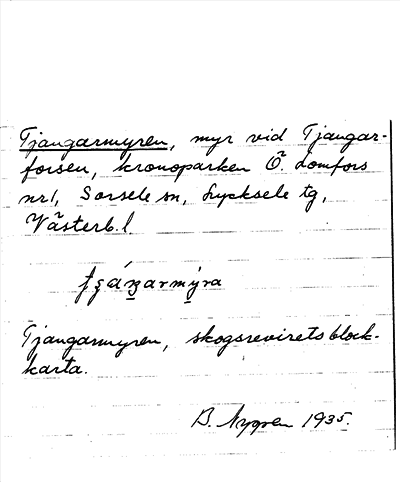 Tjangarmyren, myr vid Tjangar-
forsen, kronoparken Ö. Lomfors
nr 1, Sorsele sn, Lycksele tg,
Västerb.l.
Tjangarmyren, skogsrevirets block-
karta.
B. Nygren 1935.